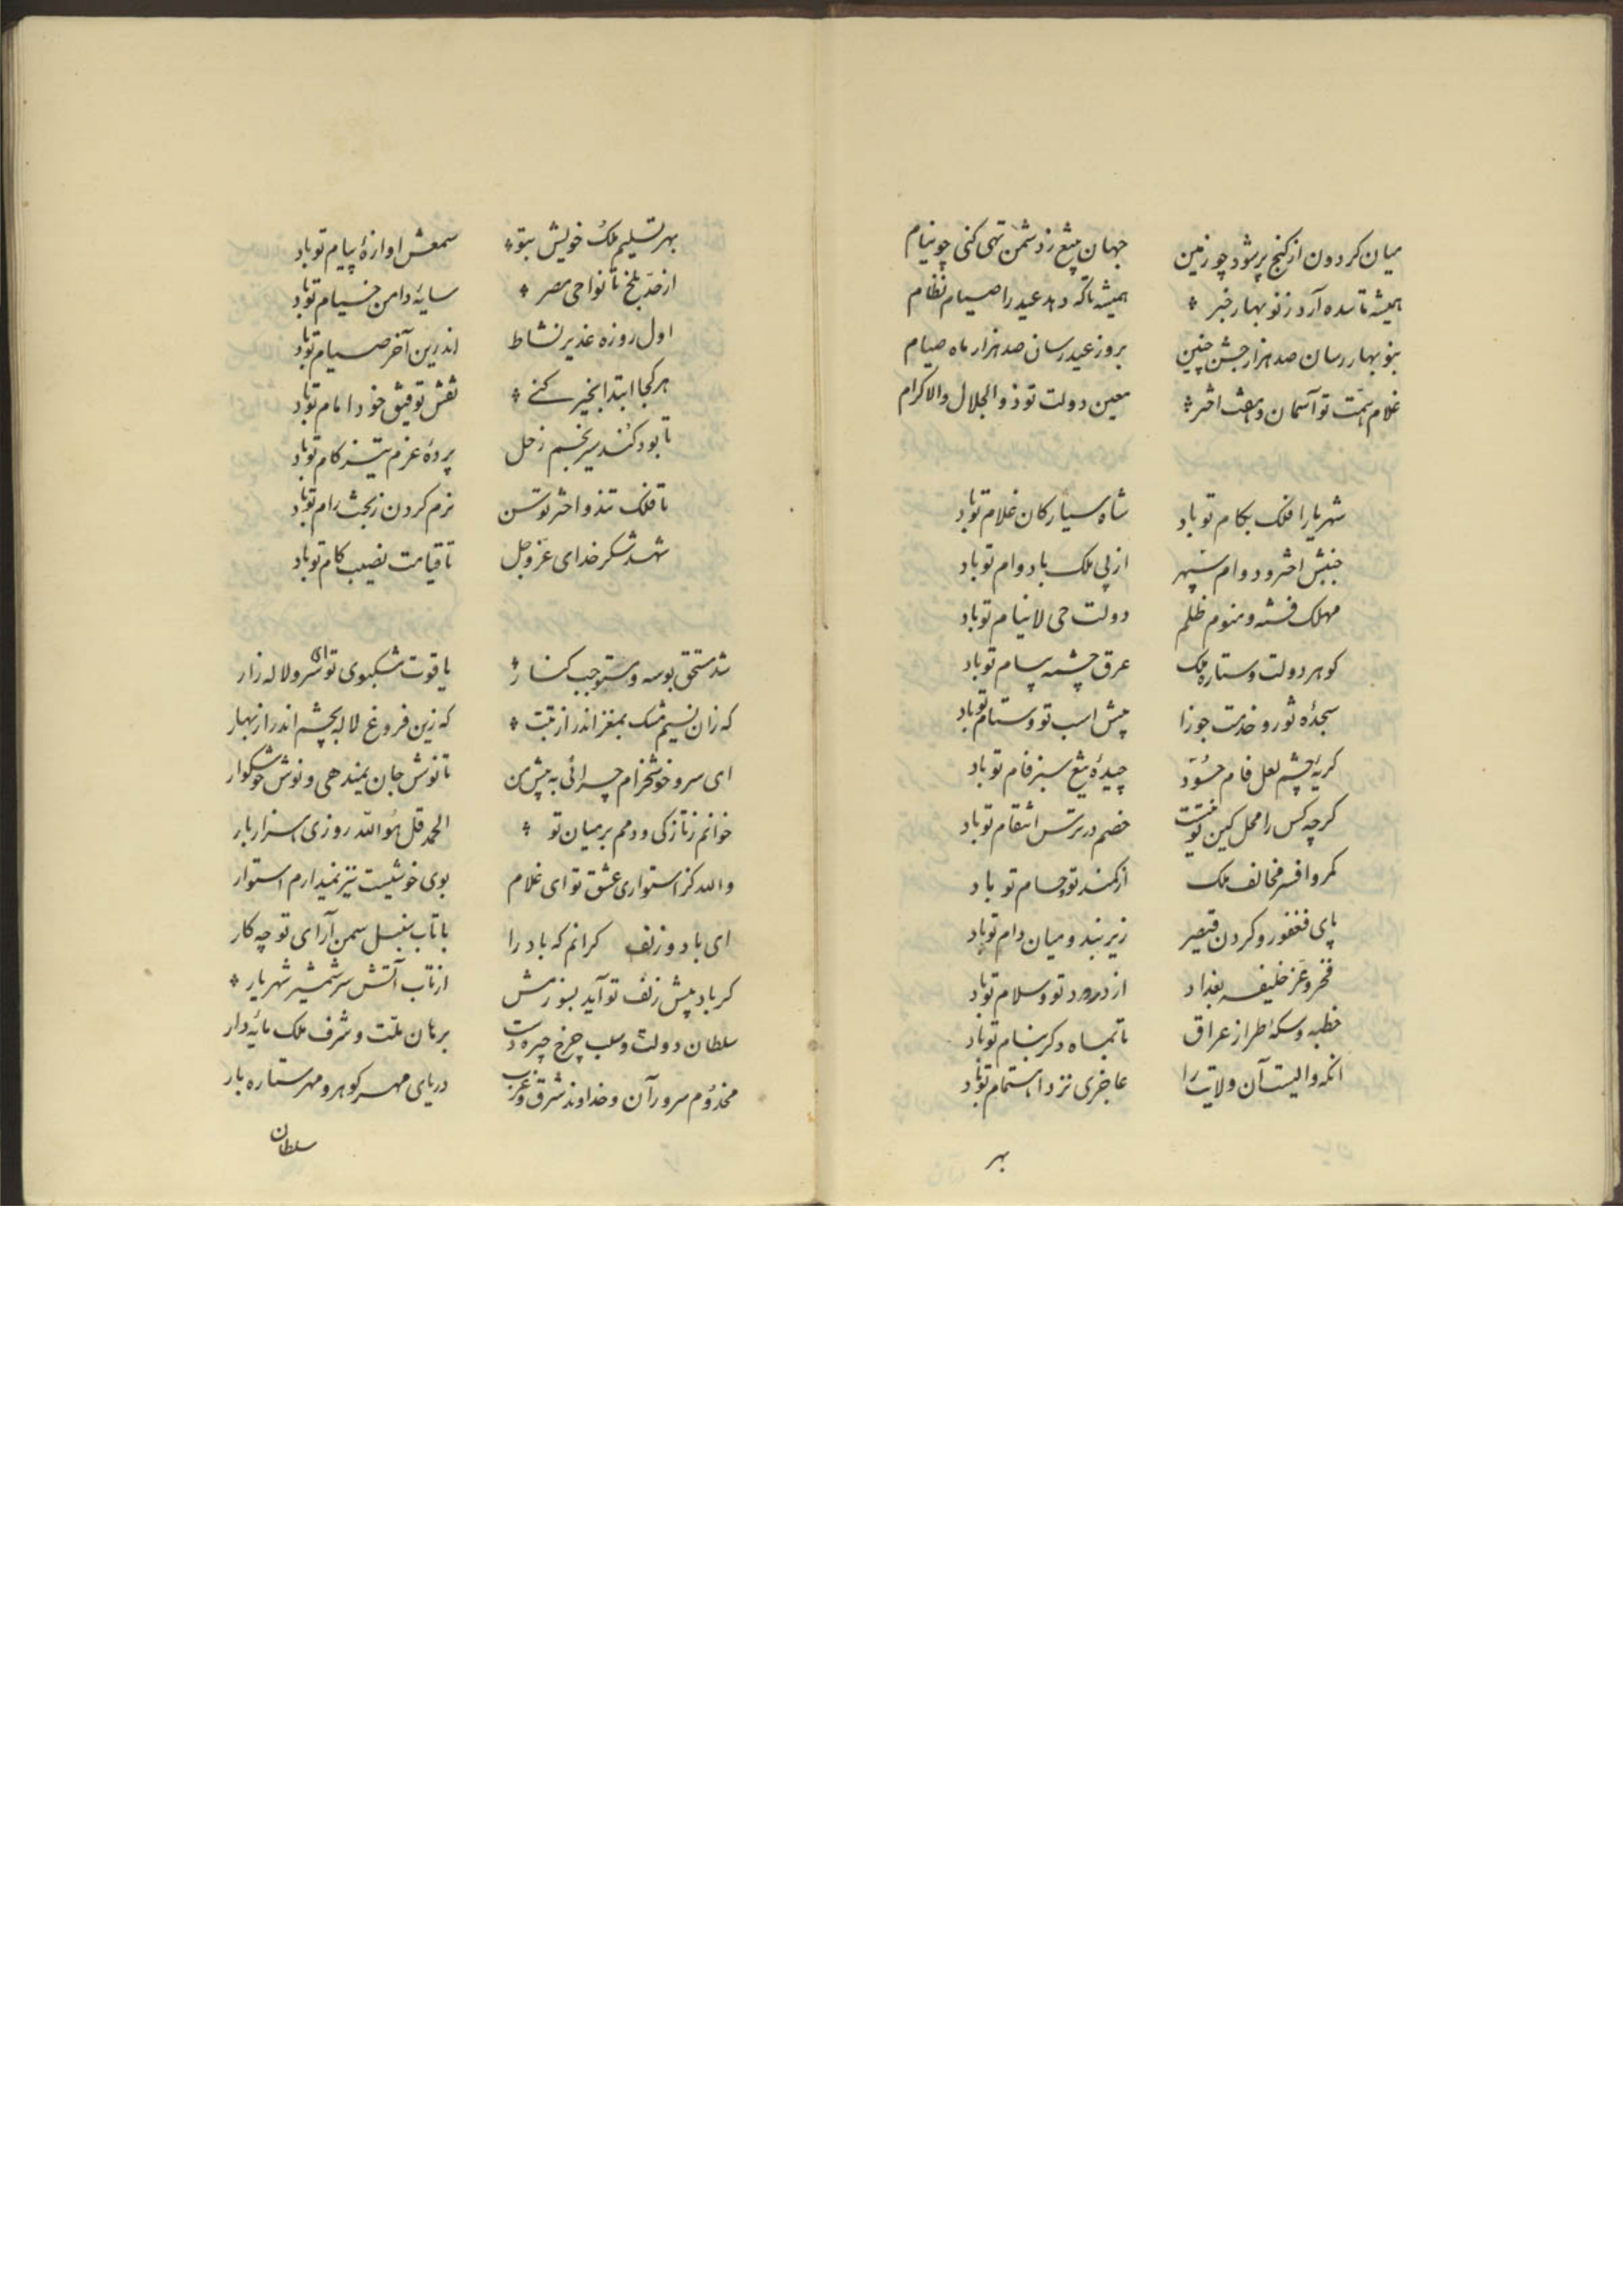 میان کردون از کنج پر شود چو زمین جهان تیغ ز دشمن تهی کنی چو نیام
همیشه تا سده آرد ز نوبهار خبر همیشه تا که دهد عید را صیام نظام
بنوبهار رسان صد هزار جشن چنین بروز عید رسان صد هزار ماه صیام
غلام همت تو آسمان و هفت اختر معین دولت تو ذوالجلال والاکرام
شهریارا فلک بکام تو باد شاه سیارکان غلام تو باد
جنبش اختر و دوام سپهر از پی ملک با دوام تو باد
مهلک فتنه و منوم ظلم دولت حی لاینام تو باد
کوهر دولت و ستاره ملک عرق چشمه تو باد
سجدهٔ ثور و خدمت جوزا پیش اسب تو و ستام تو باد
کریهٔ چشم لعل فام حسود تیغ سبز فام تو باد
کرچه کس را محل کین تو نیست خصم در ترس انتقام تو باد
کمر و افسر مخالف ملک از کمند تو و حسام تو باد
پای فغفور و کردن قیصر زیر بند و میان دام تو باد
فخر و عز خلیفه بغداد از درود تو و سلام تو باد
خطبه و سکهٔ طراز عراق تا بماه دکر بنام تو باد
انکه والیست آن ولایت را عاجزی نزد اهتمام تو باد
بهر
بهر تسلیم ملک خویش بتو سمعش اوازهٔ پیام تو باد
از حد بلخ تا نواحی مصر سایهٔ دامن خیام تو باد
اول روزه غدیر نشاط اندرین آخر صیام تو باد
هر کجا ابتدا بخیر کنی نقش توفیق خود امام تو باد
تا بود کند سیر نجم زحل پردهٔ عزم تیز کام تو باد
تا فلک تند و اختر توسن نرم کردن ز بخت رام تو باد
شهد شکر خدای عز و جل تا قیامت نصیب کام تو باد
شد مستحق بوسه و مستوجب کنار یاقوت مشکبوی تو ای سرو لاله زار
که زان نسیم مشک بمغز اندر از تبت که زین فروغ لاله بچشم اندر از بهار
ای سرو خوشخرام چرائی به پیش من تا نوش جان بمن دهی و نوش خوشکوار
خوانم ز تازکی و دمم بر میان تو الحمد قل هو الله روزی هزار بار
والله کز استواری عشق تو ای غلام بوی خوشیست نیز نمیدارم استوار
ای باد و زلف کرانم که باد را با تاب سنبل سمن آرای تو چه کار
کر باد پیش زلف تو آید بسوزمش از تاب آتش سر شمشیر شهریار
سلطان دولت و سلب چرخ چیره دست برهان ملت و شرف ملک مایه دار
مخدوم سروران و خداوند شرق و غرب دریای مهر کوهر و مهر ستاره بار
سلطان